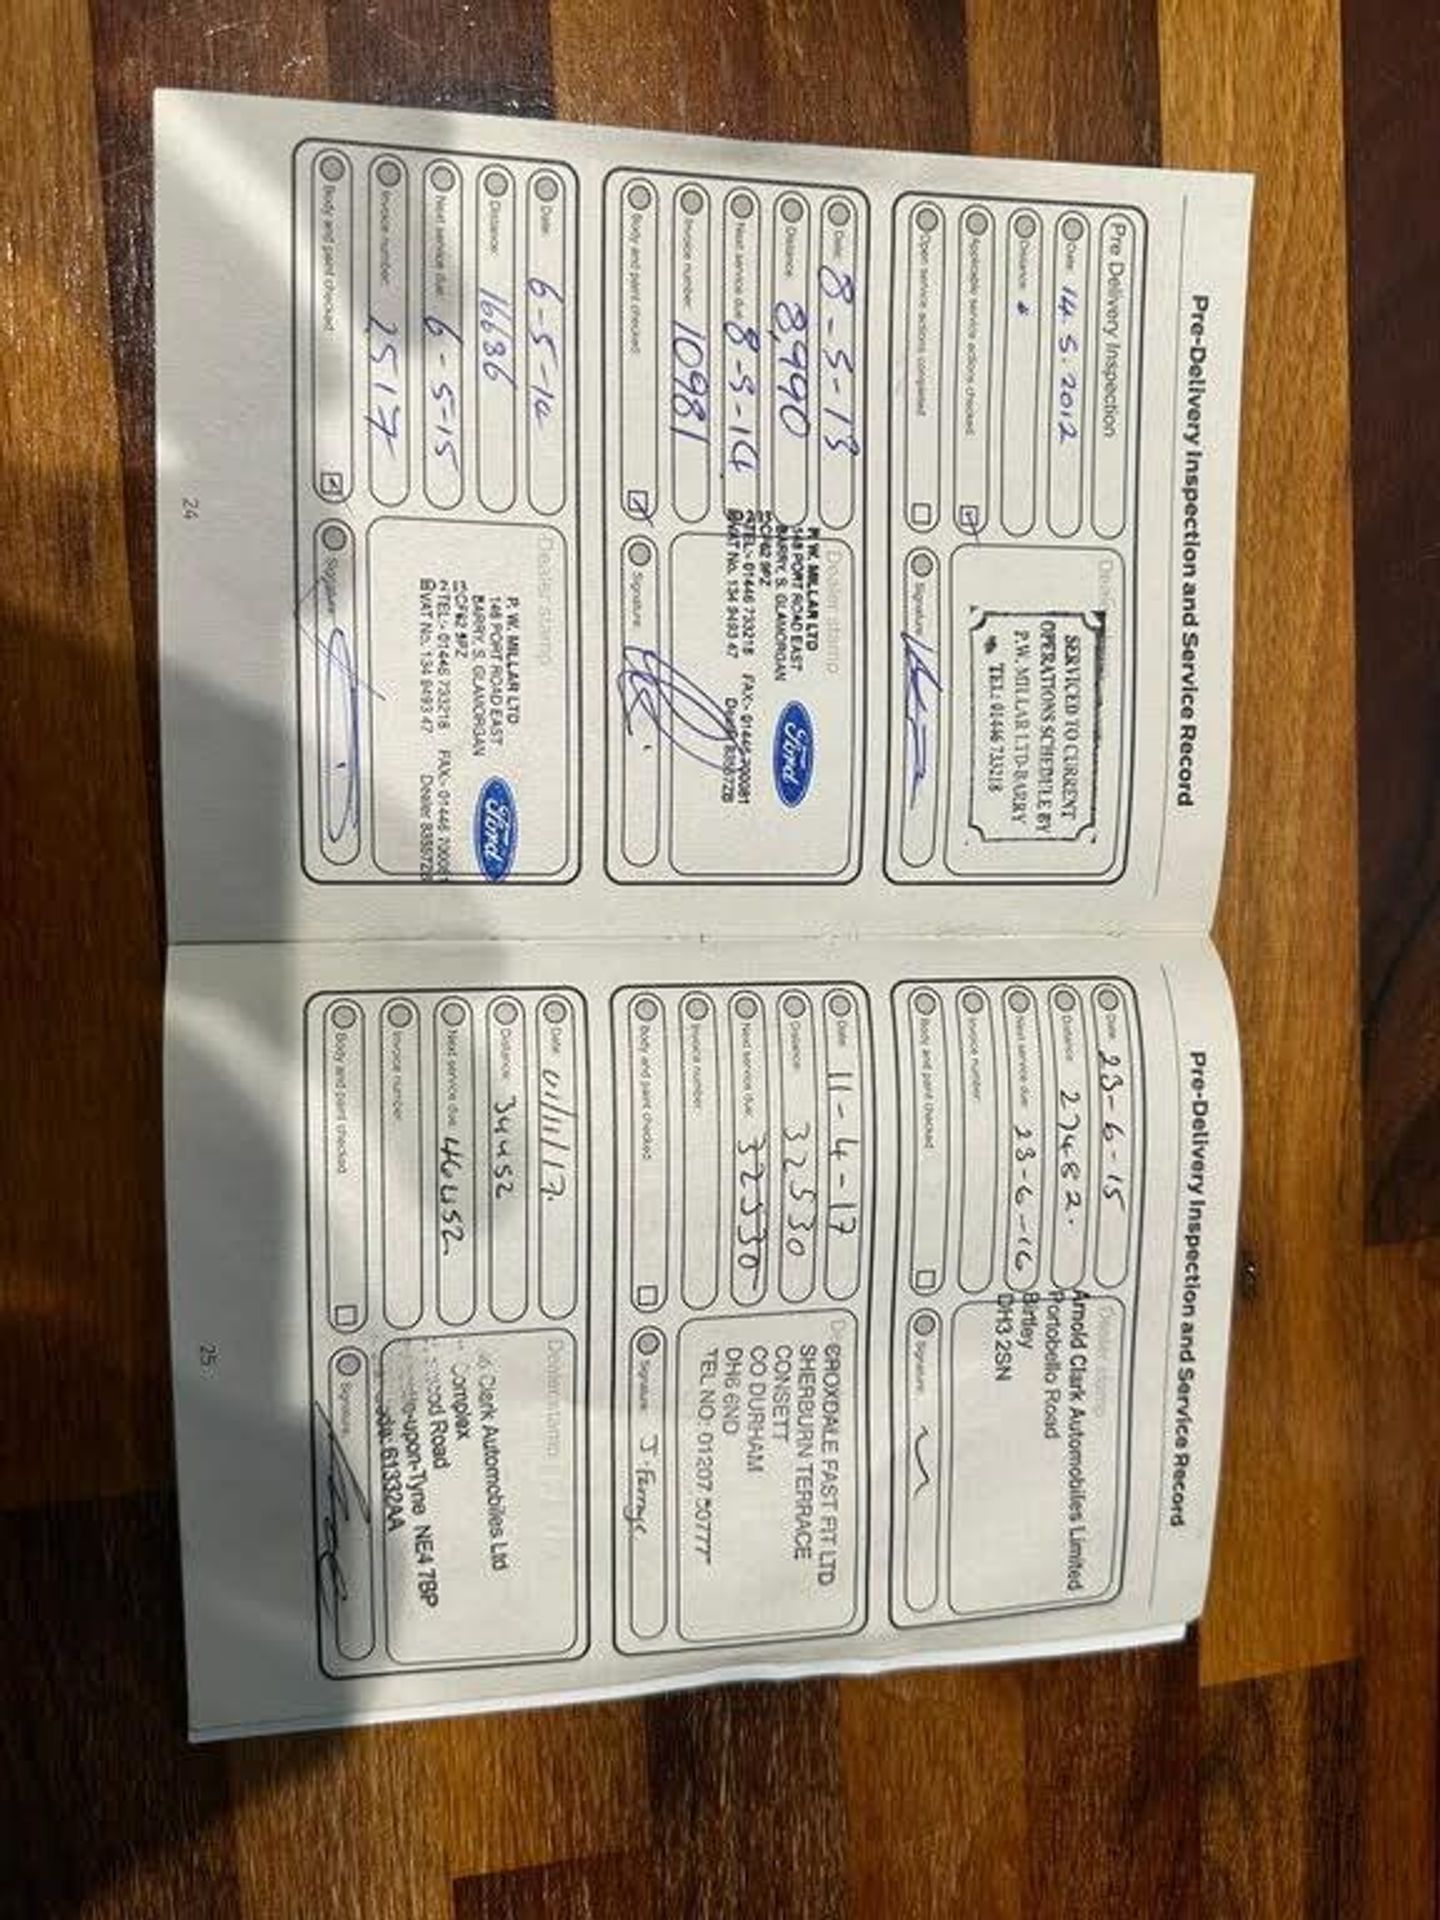 Pre-Delivery Inspection and Service Record
Pre Delivery Inspection
Date: 14.5.2012
Distance:
Applicable service actions checked:
Open service actions completed:
SERVICED TO CURRENT
OPERATIONS SCHEDULE BY
P.W. MILLAR LTD-BARRY
TEL: 01446 733218
Signature:
Date: 8-5-13
Distance: 8,990
Next service due: 8-5-14
Invoice number: 10981
Body and paint checked:
Dealer stamp
P. W. MILLAR LTD
148 PORT ROAD EAST
BARRY, S. GLAMORGAN
CF62 9PZ
TEL:- 01446 733218 FAX:- 01446 700081
VAT No. 134 9493 47 Dealer
Ford
Signature:
Date: 6-5-14
Distance: 16636
Next service due: 6-5-15
Invoice number: 2517
Body and paint checked:
Dealer stamp
P. W. MILLAR LTD
148 PORT ROAD EAST
BARRY, S. GLAMORGAN
CF62 9PZ
TEL:- 01446 733218 FAX:- 01446 700081
VAT No. 134 9493 47 Dealer
Ford
Signature:
24
Pre-Delivery Inspection and Service Record
Date: 23-6-15
Distance: 27482.
Next service due: 23-6-16
Invoice number:
Body and paint checked:
Dealer stamp
Arnold Clark Automobiles Limited
Portobello Road
Birtley
DH3 2SN
Signature:
Date: 11-4-17
Distance: 32530
Next service due: 32530
Invoice number:
Body and paint checked:
CROXDALE FAST FIT LTD
SHERBURN TERRACE
CONSETT
CO DURHAM
DH8 6ND
TEL NO: 01207 50777
Signature: J.
Date: 01/11/17.
Distance: 34452
Next service due: 46452
Invoice number:
Body and paint checked:
Dealer stamp
Clark Automobiles Ltd
Complex
Road
-upon-Tyne NE4 7BP
61332AA
Signature:
25